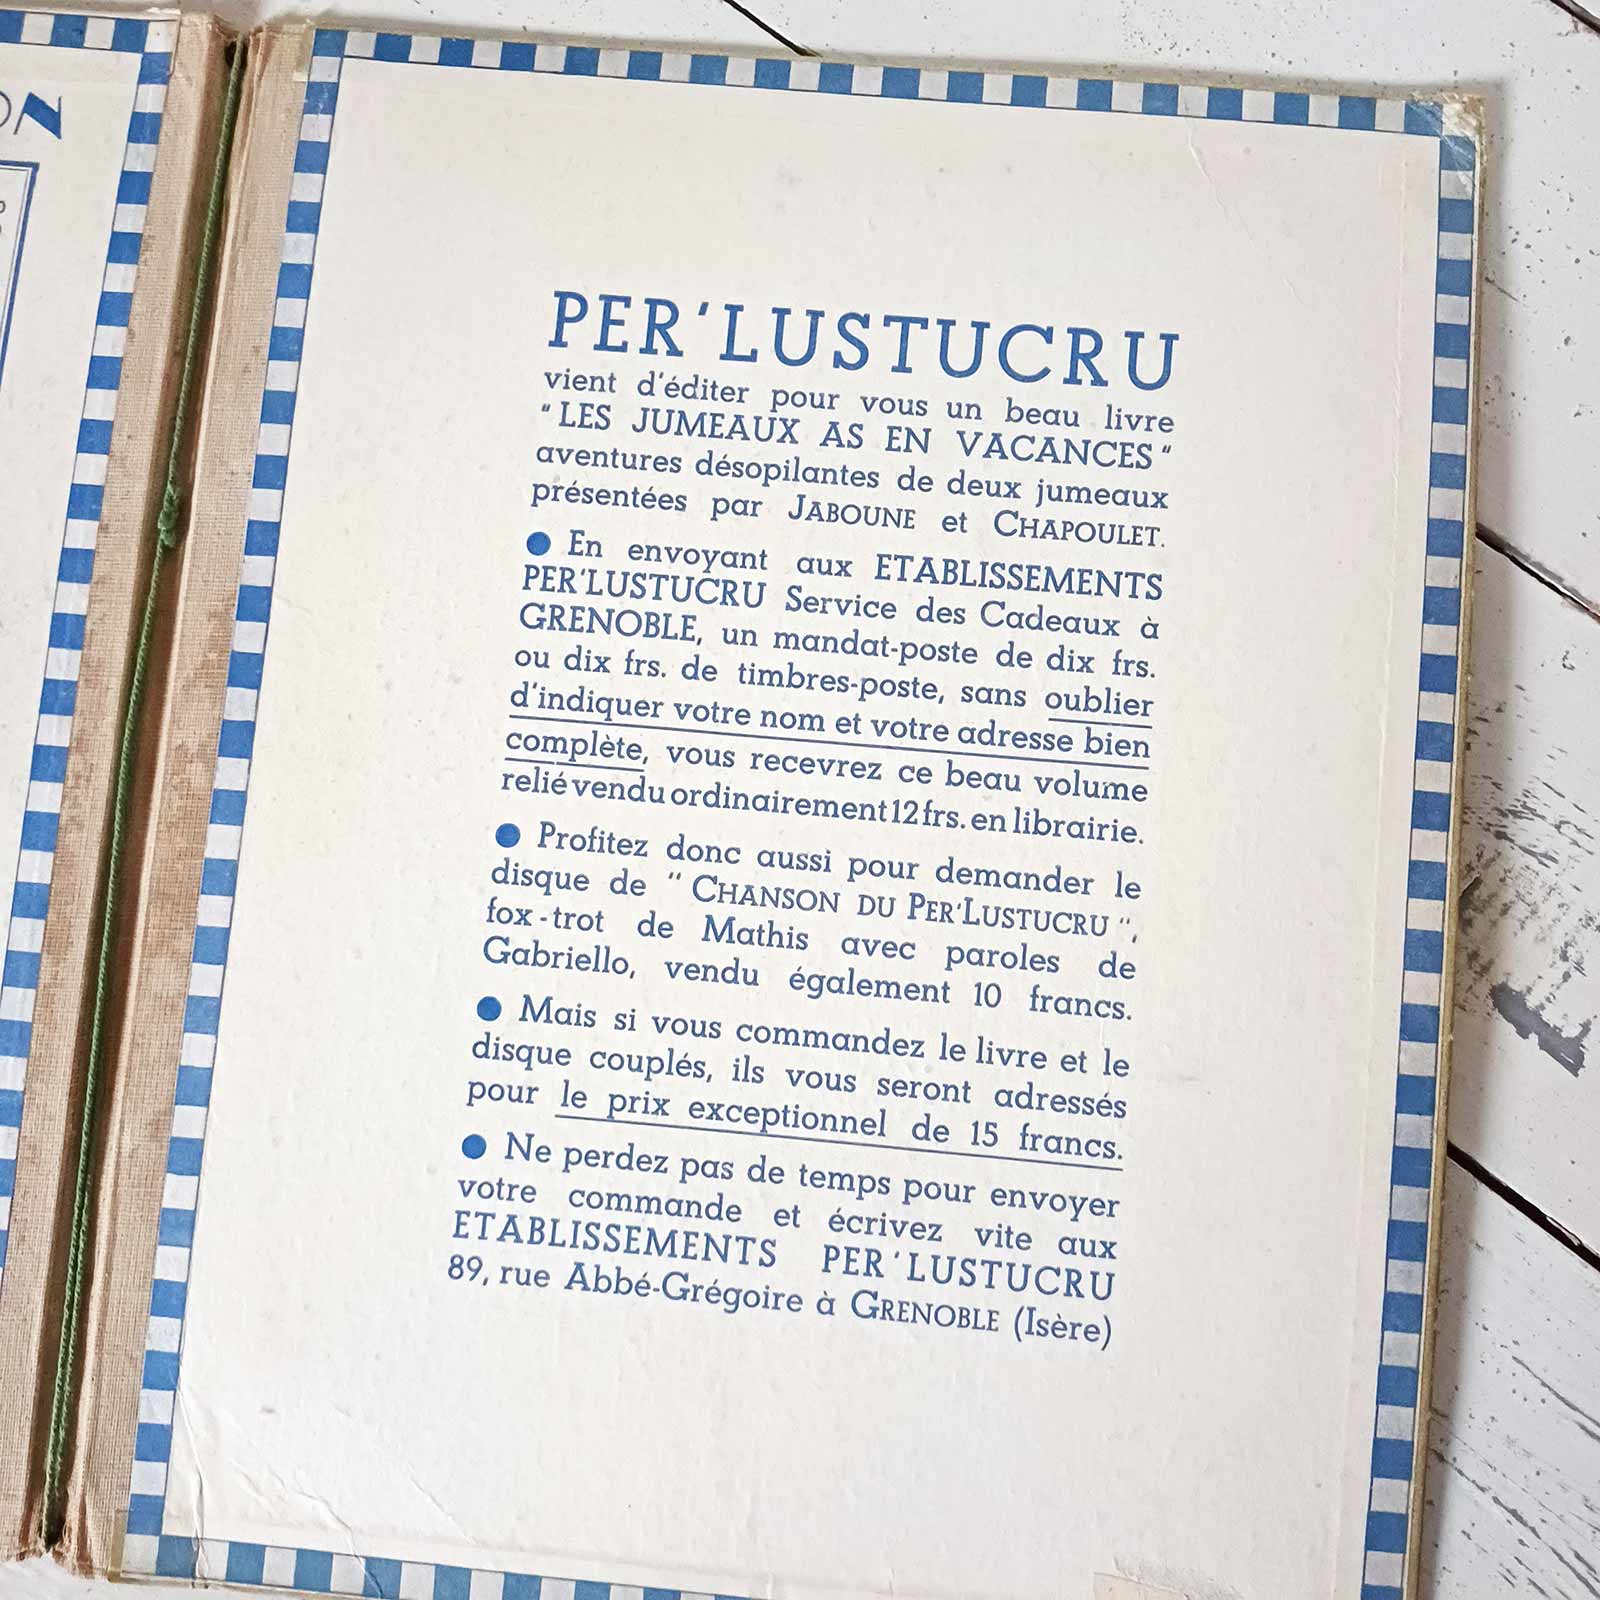 PER'LUSTUCRU
vient d'éditer pour vous un beau livre
"LES JUMEAUX AS EN VACANCES"
aventures désopilantes de deux jumeaux
présentées par JABOUNE et CHAPOULET.
● En envoyant aux ETABLISSEMENTS
PER'LUSTUCRU Service des Cadeaux à
GRENOBLE, un mandat-poste de dix frs.
ou dix frs. de timbres-poste, sans oublier
d'indiquer votre nom et votre adresse bien
complète, vous recevrez ce beau volume
relié vendu ordinairement 12 frs. en librairie.
● Profitez donc aussi pour demander le
disque de "CHANSON DU PER'LUSTUCRU",
fox-trot de Mathis avec paroles de
Gabriello, vendu également 10 francs.
● Mais si vous commandez le livre et le
disque couplés, ils vous seront adressés
pour le prix exceptionnel de 15 francs.
● Ne perdez pas de temps pour envoyer
votre commande et écrivez vite aux
ETABLISSEMENTS PER'LUSTUCRU
89, rue Abbé-Grégoire à GRENOBLE (Isère)